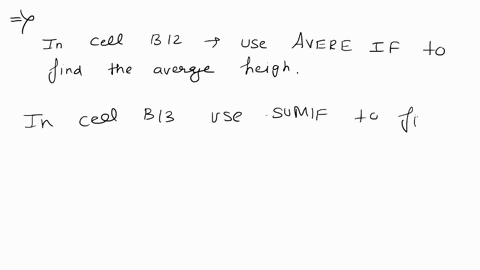 =>
In cell B12 → use AVERE IF to
find the average heigh.
In cell B13 use SUMIF to fi